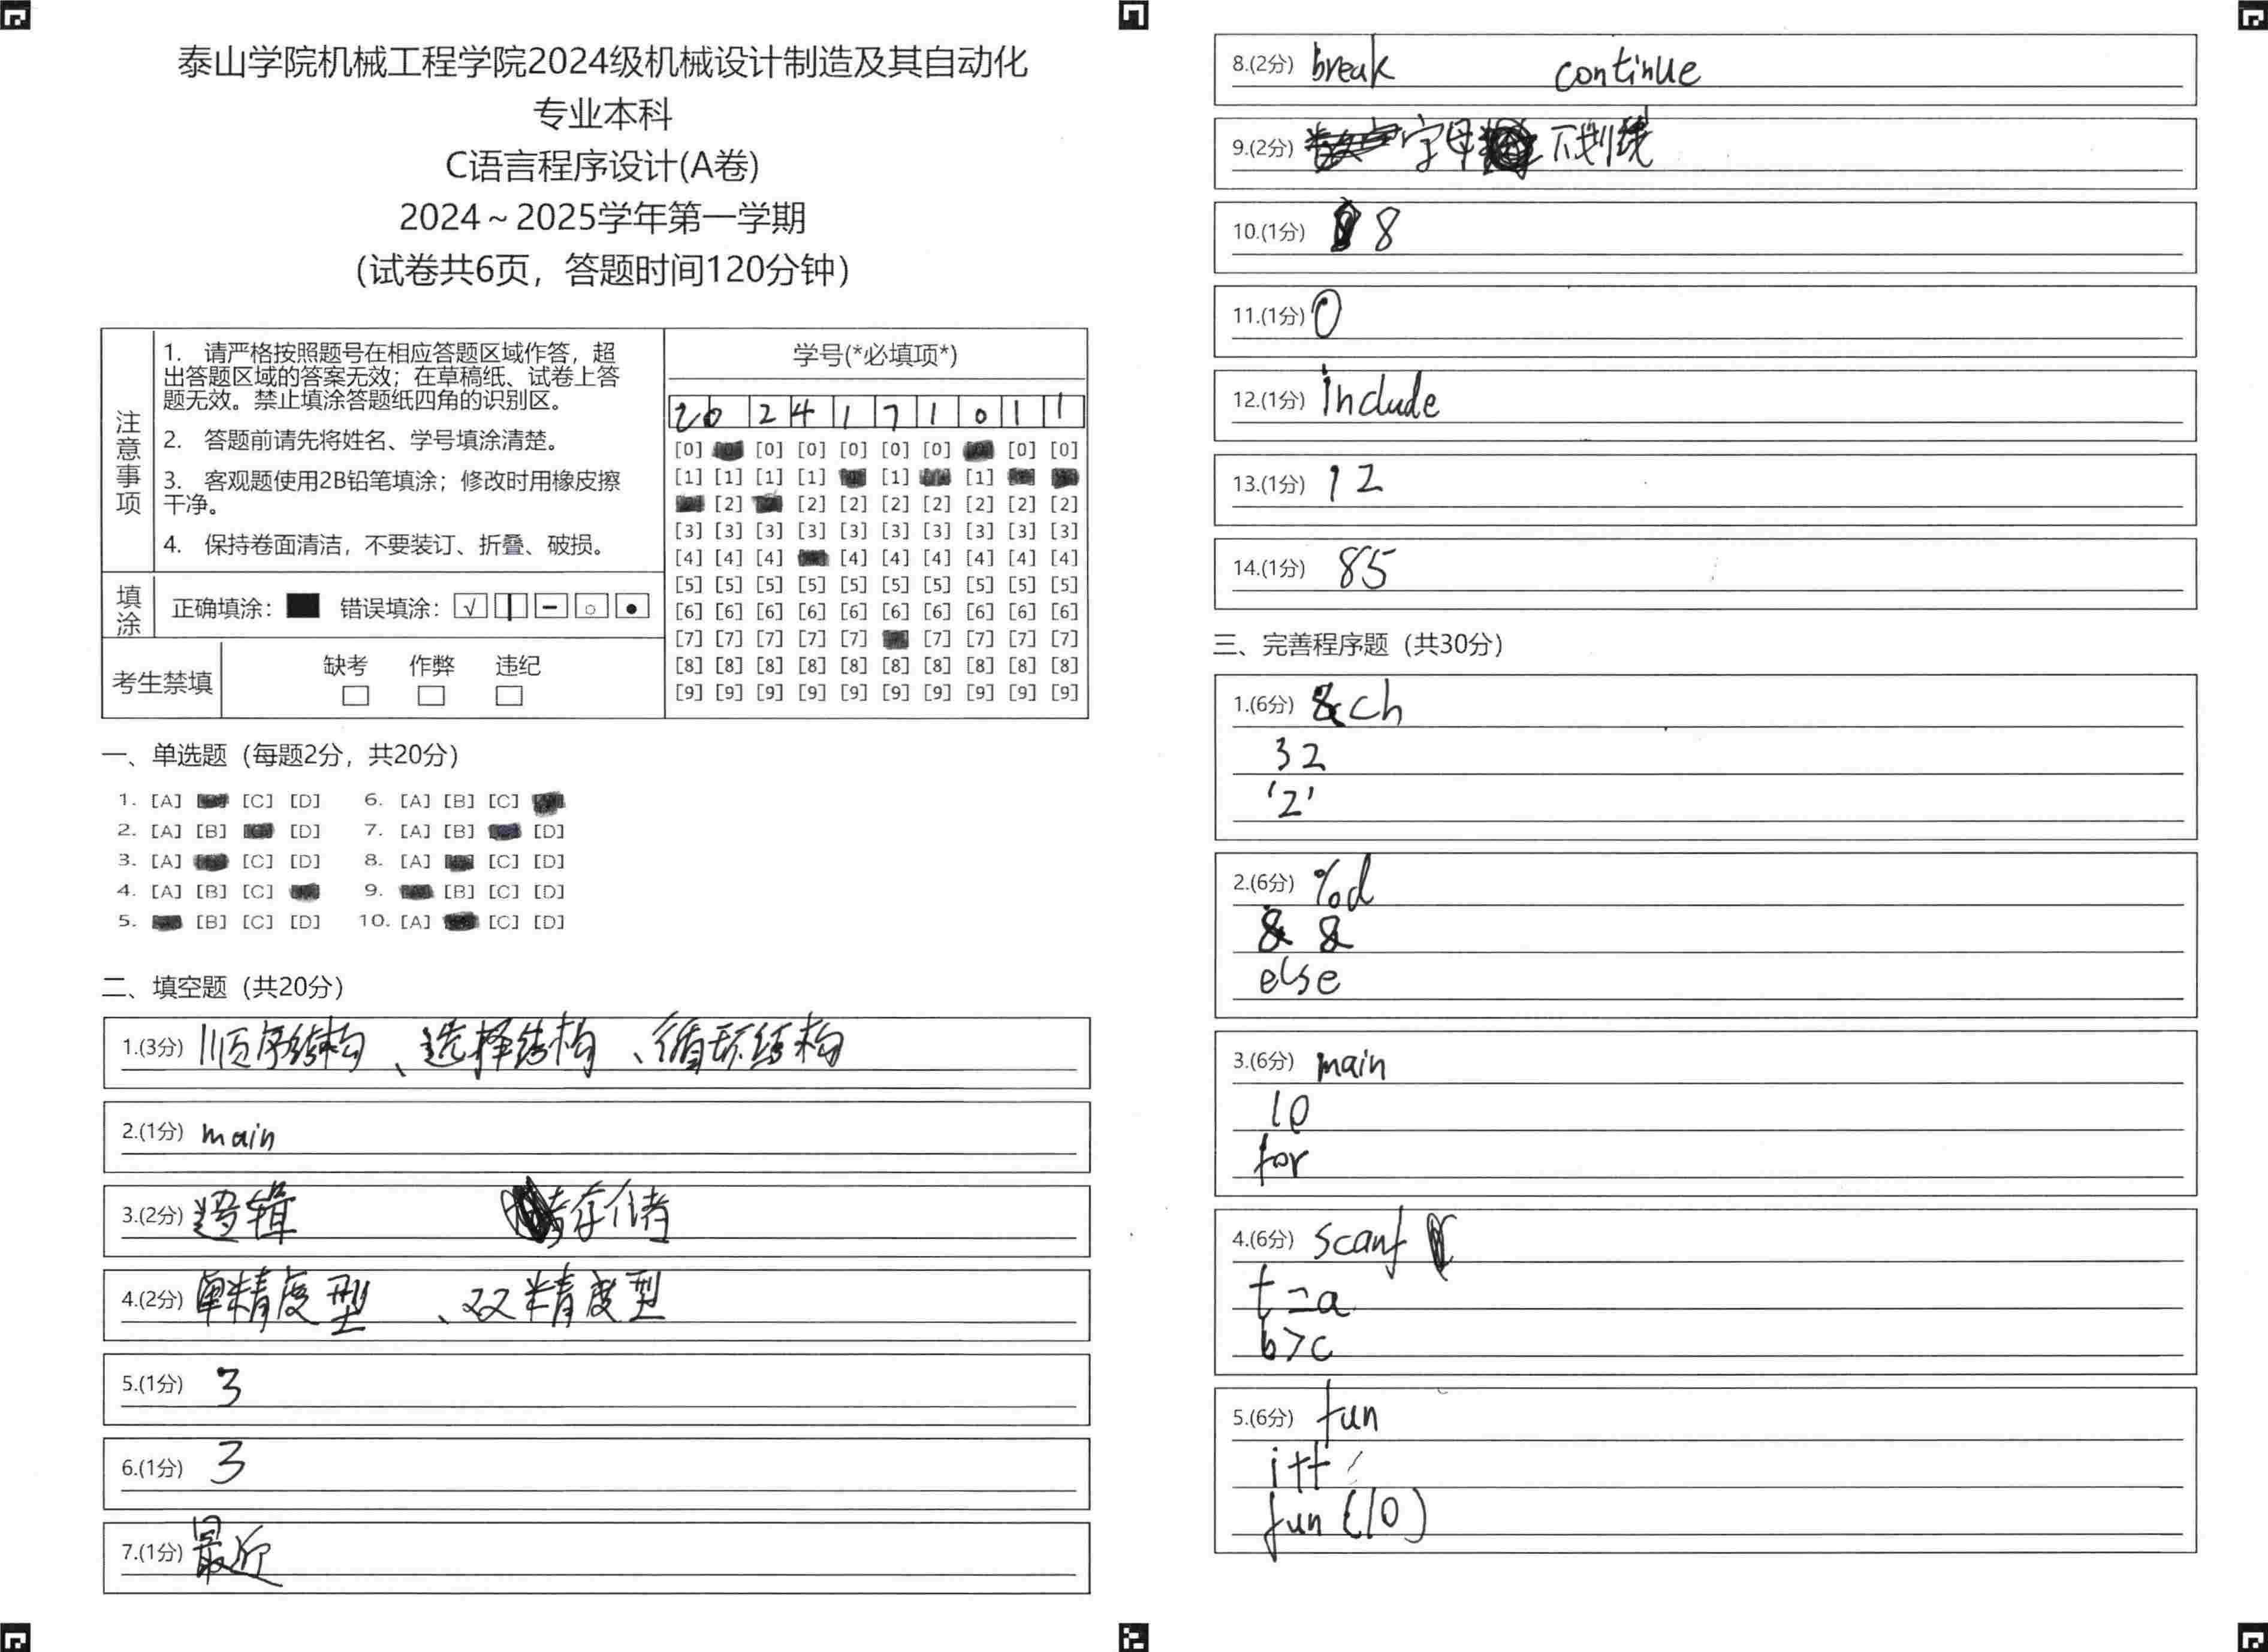 泰山学院机械工程学院2024级机械设计制造及其自动化
专业本科
C语言程序设计(A卷)
2024～2025学年第一学期
(试卷共6页，答题时间120分钟)
注意事项
1. 请严格按照题号在相应答题区域作答，超
出答题区域的答案无效；在草稿纸、试卷上答
题无效。禁止填涂答题纸四角的识别区。
2. 答题前请先将姓名、学号填涂清楚。
3. 客观题使用2B铅笔填涂；修改时用橡皮擦
干净。
4. 保持卷面清洁，不要装订、折叠、破损。
填涂
正确填涂： 错误填涂： √
考生禁填
缺考 作弊 违纪
学号(*必填项*)
2 0 2 4 1 7 1 0 1 1
[0] [0] [0] [0] [0] [0] [0] [0]
[1] [1] [1] [1] [1] [1]
[2] [2] [2] [2] [2] [2] [2] [2]
[3] [3] [3] [3] [3] [3] [3] [3] [3] [3]
[4] [4] [4] [4] [4] [4] [4] [4] [4]
[5] [5] [5] [5] [5] [5] [5] [5] [5] [5]
[6] [6] [6] [6] [6] [6] [6] [6] [6] [6]
[7] [7] [7] [7] [7] [7] [7] [7] [7]
[8] [8] [8] [8] [8] [8] [8] [8] [8] [8]
[9] [9] [9] [9] [9] [9] [9] [9] [9] [9]
一、单选题（每题2分，共20分）
1. [A] [C] [D] 6. [A] [B] [C]
2. [A] [B] [D] 7. [A] [B] [D]
3. [A] [C] [D] 8. [A] [C] [D]
4. [A] [B] [C] 9. [B] [C] [D]
5. [B] [C] [D] 10. [A] [C] [D]
二、填空题（共20分）
1.(3分) 顺序结构、选择结构、循环结构
2.(1分) main
3.(2分) 逻辑 存储
4.(2分) 单精度型、双精度型
5.(1分) 3
6.(1分) 3
7.(1分) 最近
8.(2分) break continue
9.(2分) 字母 下划线
10.(1分) 8
11.(1分) 0
12.(1分) include
13.(1分) 12
14.(1分) 85
三、完善程序题（共30分）
1.(6分) &ch
32
'2'
2.(6分) %d
& &
else
3.(6分) main
10
for
4.(6分) scanf
t=a
b>c
5.(6分) fun
i++
fun(10)